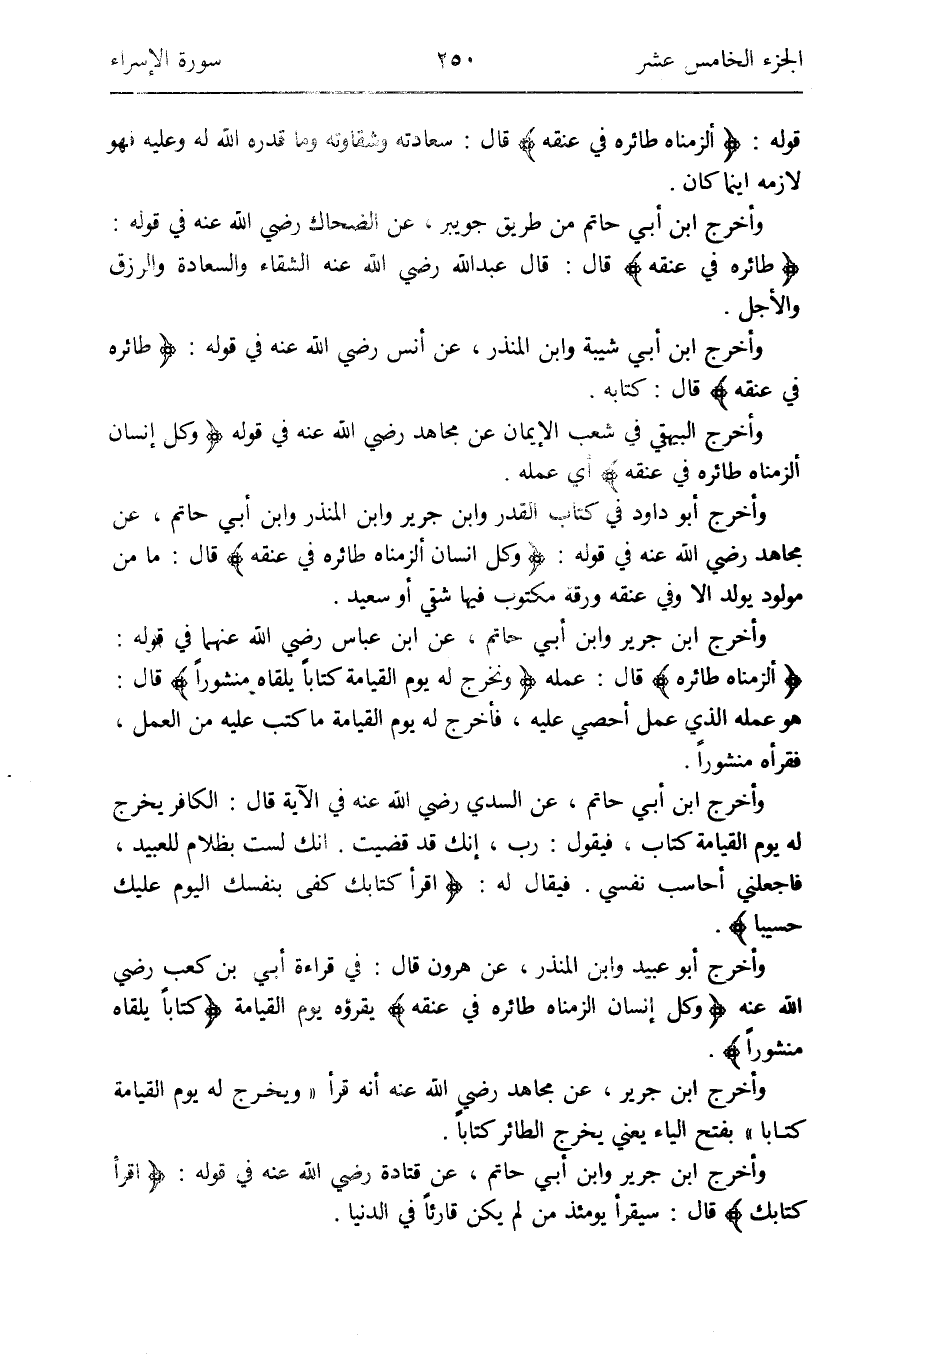 الجزء الخامس عشر ٢٥٠ سورة الإسراء
قوله : ﴿ ألزمناه طائره في عنقه ﴾ قال : سعادته وشقاوته وما قدره الله له وعليه فهو
لازمه اينما كان .
وأخرج ابن أبي حاتم من طريق جويبر ، عن الضحاك رضي الله عنه في قوله :
﴿ طائره في عنقه ﴾ قال : قال عبدالله رضي الله عنه الشقاء والسعادة والرزق
والأجل .
وأخرج ابن أبي شيبة وابن المنذر ، عن أنس رضي الله عنه في قوله : ﴿ طائره
في عنقه ﴾ قال : كتابه .
وأخرج البيهقي في شعب الإيمان عن مجاهد رضي الله عنه في قوله ﴿ وكل إنسان
ألزمناه طائره في عنقه ﴾ أي عمله .
وأخرج أبو داود في كتاب القدر وابن جرير وابن المنذر وابن أبي حاتم ، عن
مجاهد رضي الله عنه في قوله : ﴿ وكل انسان ألزمناه طائره في عنقه ﴾ قال : ما من
مولود يولد الا وفي عنقه ورقة مكتوب فيها شقي أو سعيد .
وأخرج ابن جرير وابن أبي حاتم ، عن ابن عباس رضي الله عنهما في قوله :
﴿ ألزمناه طائره ﴾ قال : عمله ﴿ ونخرج له يوم القيامة كتاباً يلقاه منشوراً ﴾ قال :
هو عمله الذي عمل أحصي عليه ، فأخرج له يوم القيامة ما كتب عليه من العمل ،
فقرأه منشوراً .
وأخرج ابن أبي حاتم ، عن السدي رضي الله عنه في الآية قال : الكافر يخرج
له يوم القيامة كتاب ، فيقول : رب ، إنك قد قضيت . انك لست بظلام للعبيد ،
فاجعلني أحاسب نفسي . فيقال له : ﴿ اقرأ كتابك كفى بنفسك اليوم عليك
حسيبا ﴾ .
وأخرج أبو عبيد وابن المنذر ، عن هرون قال : في قراءة أبي بن كعب رضي
الله عنه ﴿ وكل إنسان الزمناه طائره في عنقه ﴾ يقرؤه يوم القيامة ﴿ كتاباً يلقاه
منشوراً ﴾ .
وأخرج ابن جرير ، عن مجاهد رضي الله عنه أنه قرأ « ويخرج له يوم القيامة
كتابا » بفتح الياء يعني يخرج الطائر كتاباً .
وأخرج ابن جرير وابن أبي حاتم ، عن قتادة رضي الله عنه في قوله : ﴿ اقرأ
كتابك ﴾ قال : سيقرأ يومئذ من لم يكن قارئاً في الدنيا .